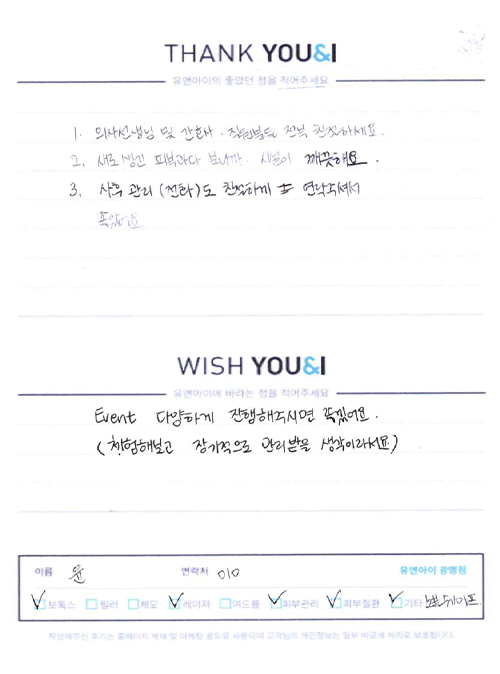 THANK YOU&I
유앤아이의 좋았던 점을 적어주세요
1. 의사선생님 및 간호사. 전부 친절하세요.
2. 새로 생긴 피부과다 보니까. 시설이 깨끗해요.
3. 사후 관리 (전화)도 친절하게 연락주셔서
좋았어요
WISH YOU&I
유앤아이에 바라는 점을 적어주세요
Event 다양하게 진행해주시면 좋겠어요.
(체험해보고 장기적으로 관리받을 생각이라서요)
이름 윤 연락처 010 유앤아이 광명점
보톡스 필러 제모 레이저 여드름 피부관리 피부질환 기타
작성해주신 후기는 홈페이지 게재 및 마케팅 용도로 사용되며 고객님의 개인정보는 일부 비공개 처리로 보호됩니다.